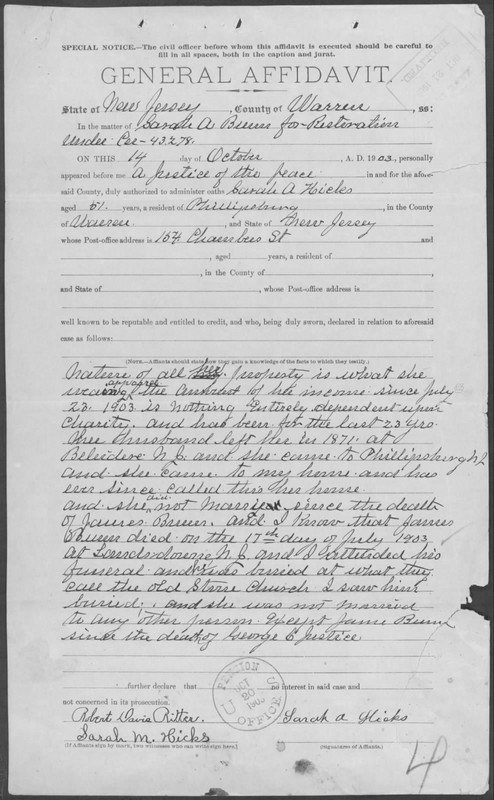 SPECIAL NOTICE.—The civil officer before whom this affidavit is executed should be careful to
fill in all spaces, both in the caption and jurat.
GENERAL AFFIDAVIT.
State of New Jersey, County of Warren, ss:
In the matter of Sarah A for Restoration
Under Cer- 43278.
ON THIS 14 day of October, A. D. 1903, personally
appeared before me A Justice of the Peace in and for the afore-
said County, duly authorized to administer oaths Sarah A Hicks
aged 51 years, a resident of Phillipsburg, in the County
of Warren, and State of New Jersey
whose Post-office address is 154 Chambers St and
, aged years, a resident of
, in the County of
and State of , whose Post-office address is
well known to be reputable and entitled to credit, and who, being duly sworn, declared in relation to aforesaid
case as follows:
(NOTE.—Affiants should state how they gain a knowledge of the facts to which they testify.)
Nature of all her property is what she
wearing apparel the amount of her income since July
23. 1903 is Nothing Entirely dependent upon
charity. and has been for the last 23 yrs.
Her Husband left her in 1871. at
Belvidere N.J. and she came to Phillipsburg N.J
and she came to my home and has
ever since called this her home.
and she did not Marry since the death
of James. and I Know that James
died on the 17th day of July 1903
at N.J. and I attended his
funeral and he was buried at what they
call the old Stone Church I saw him
buried. and she was not married
to any other person Except
since the death of George C Justice
further declare that no interest in said case and
not concerned in its prosecution.
PENSION OFFICE
U S
OCT 20 1903
Robert Davis Ritter.
Sarah A Hicks
Sarah M. Hicks
(If Affiants sign by mark, two witnesses who can write sign here.)
(Signatures of Affiants.)
4